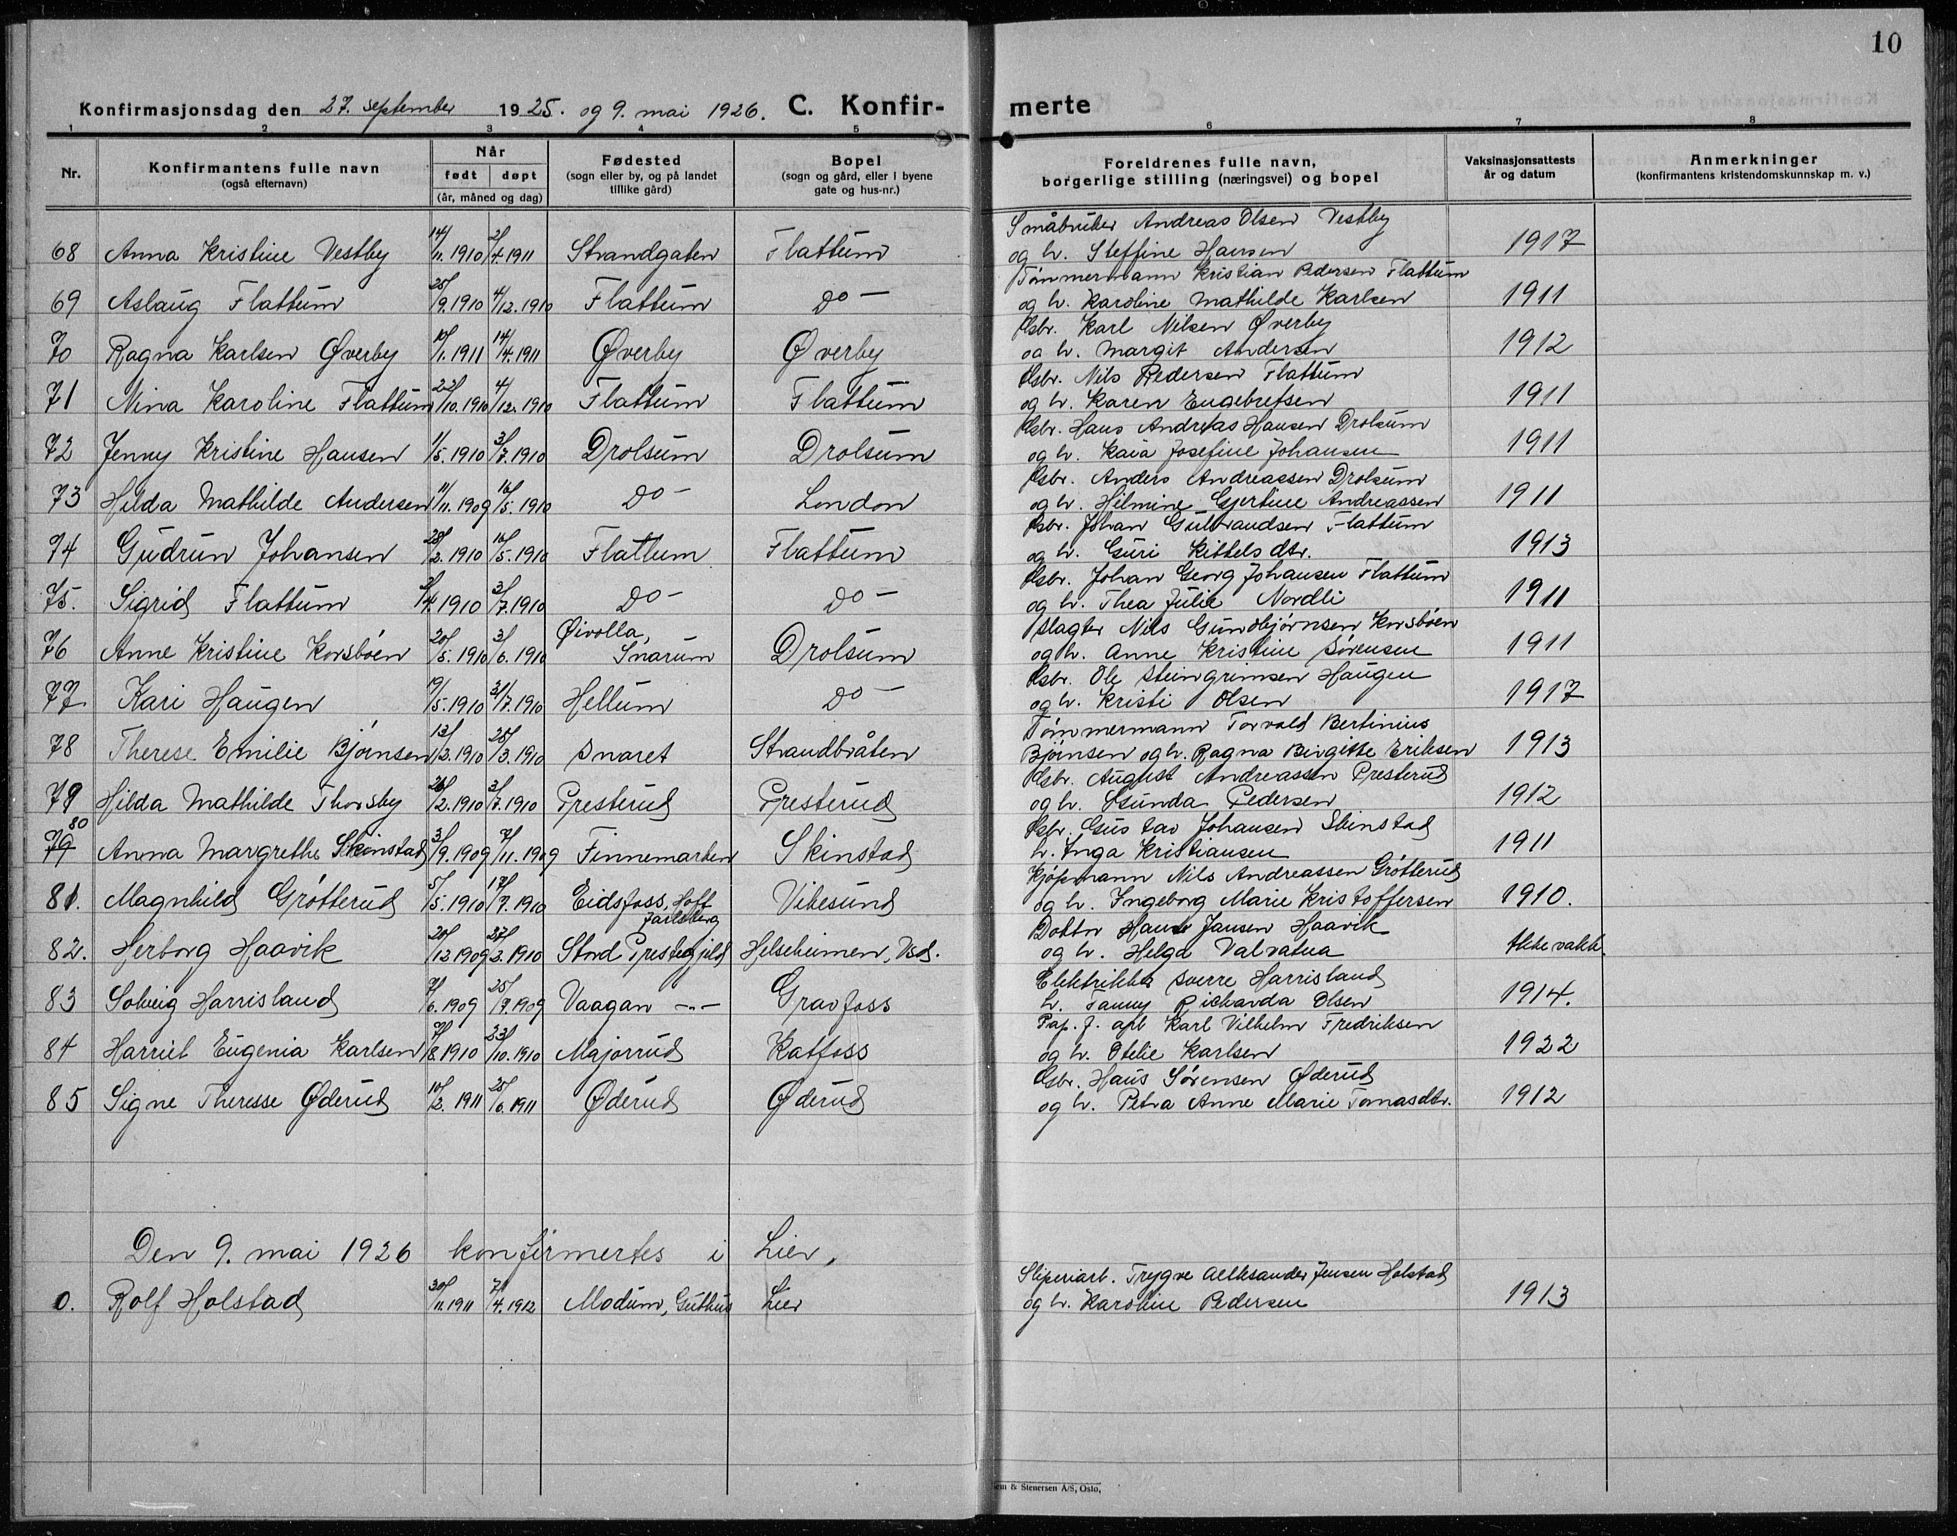 10
Konfirmasjonsdag den 27. september 1925. og 9. mai 1926. C. Konfir- merte
1 2 3 4 5 6 7 8
Nr.
Konfirmantens fulle navn
(også efternavn)
Når
født døpt
(år, måned og dag)
Fødested
(sogn eller by, og på landet
tillike gård)
Bopel
(sogn og gård, eller i byene
gate og hus-nr.)
Foreldrenes fulle navn,
borgerlige stilling (næringsvei) og bopel
Vaksinasjonsattests
år og datum
Anmerkninger
(konfirmantens kristendomskunnskap m. v.)
Småbruker Andreas Olsen Vestby
68 Anna Kristine Vestby 14/11. 1910 2/4. 1911 Strandgaten Flattum og h. Steffine Hansen 1917
Tømmermann Kristian Pedersen Flattum
69 Aslaug Flattum 25/9. 1910 4/12. 1910 Flattum Do — og h. Karoline Mathilde Karlsen 1911
Gsbr. Karl Nilsen Øverby
70 Ragna Karlsen Øverby 10/1. 1911 14/4. 1911 Øverby Øverby og h. Margit Andersen 1912
Gsbr. Nils Pedersen Flattum
71 Nina Karoline Flattum 22/10. 1910 4/12. 1910 Flattum Flattum og h. Karen Engebretsen 1911
Gsbr. Hans Andreas Hansen Drolsum
72 Jenny Kristine Hansen 1/5. 1910 3/7. 1910 Drolsum Drolsum og h. Kaia Josefine Johansen 1911
Gsbr. Anders Andreassen Drolsum
73 Hilda Mathilde Andersen 11/11. 1909 16/5. 1910 Do — London og h. Hilmine Gjertine Andreassen 1911
Gsbr. Johan Gulbrandsen Flattum
74 Gudrun Johansen 28/2. 1910 16/5. 1910 Flattum Flattum og h. Guri Kittelsdtr. 1913
Gsbr. Johan Georg Johansen Flattum
75. Sigrid Flattum 2/4. 1910 3/7. 1910 Do — Do — og h. Thea Julie Nordli 1911
Øivolla, Slagter Nils Gundbjørnsen Korsbøen
76 Anne Kristine Korsbøen 20/5. 1910 3/6. 1910 Snarum Drolsum og h. Anne Kristine Sørensen 1911
Gsbr. Ole Steingrimsen Haugen
77 Kari Haugen 19/5. 1910 31/7. 1910 Hellum Do — og h. Kristi Olsen 1917
Tømmermann Torvald Bertinius
78 Therese Emilie Bjørnsen 13/2. 1910 25/3. 1910 Snaret Strandbråten Bjørnsen og h. Ragna Birgitte Eriksen 1913
Gsbr. August Andreassen Presterud
79 Hilda Mathilde Thorsby 26/2. 1910 3/7. 1910 Presterud Presterud og h. Gunda Pedersen 1912
80 Gsbr. Gustav Johansen Skinstad
79 Anna Margrethe Skinstad 3/9. 1909 7/11. 1909 Finnemarken Skinstad h. Inga Kristiansen 1911
Kjøpmann Nils Andreassen Grøtterud
81. Magnhild Grøtterud 5/5. 1910 17/7. 1910 Eidsfoss, Hoff Vikesund og h. Ingeborg Marie Kristoffersen 1910.
Jarlsberg Doktor Hans Jansen Haavik
82. Herborg Haavik 20/12 1909 27/2. 1910 Stord Prestegjeld Helseheimen, Vsd. og h. Helga Valvatna Ikke vakk.
Elektriker Sverre Harrisland
83 Solveig Harrisland 7/6. 1909 25/7. 1909 Vaagan — " — Gravfoss h. Fanny Richarda Olsen 1914.
Pap. f. arb Karl Vilhelm Fredriksen
84 Harriet Eugenia Karlsen 7/8. 1910 23/10. 1910 Majorrud Katfoss og h. Otelie Karlsen 1922
Gsbr. Hans Sørensen Øderud
85 Signe Theresse Øderud 10/2. 1911 25/6. 1911 Øderud Øderud og h. Petra Anne Marie Tomasdtr. 1912
Den 9. mai 1926 konfirmertes i Lier.
Sliperiarb. Trygve Alleksander Jensen Holstad
0. Rolf Holstad 30/11. 1911 7/4. 1912 Modum, Guthus Lier og h. Karoline Pedersen 1913
em & Stenersen A/S, Oslo,